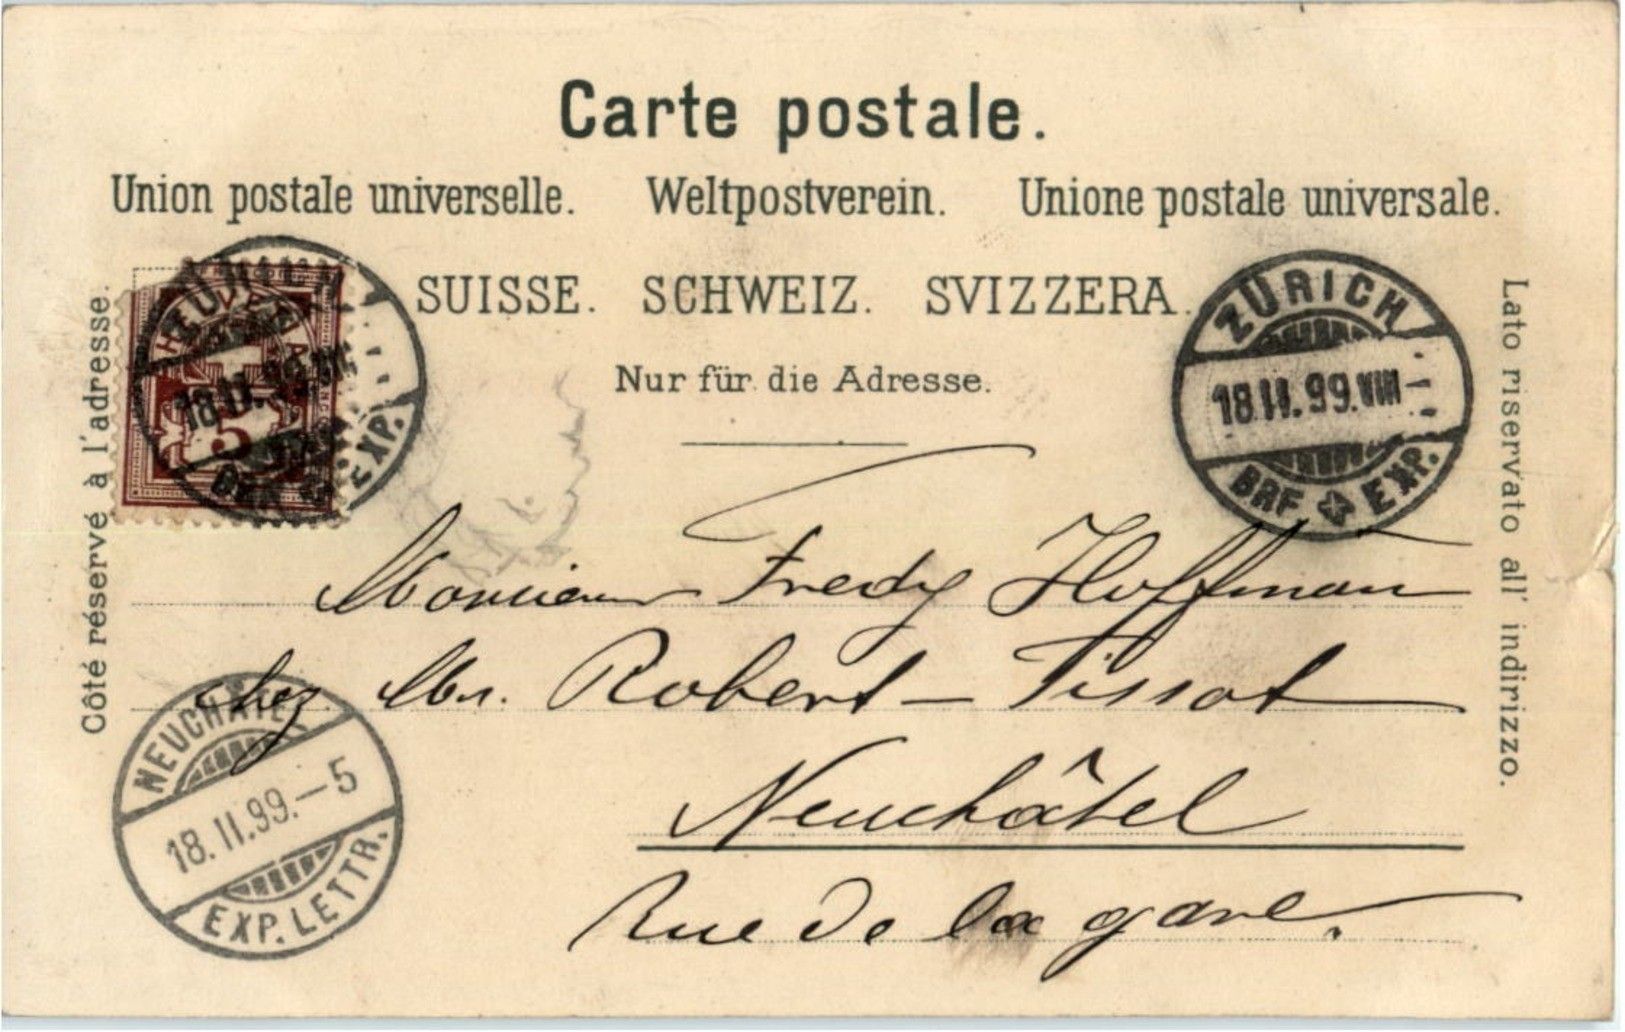 Carte postale.
Union postale universelle. Weltpostverein. Unione postale universale.
SUISSE. SCHWEIZ. SVIZZERA.
Nur für die Adresse.
Côté réservé à l'adresse.
Lato riservato all' indirizzo.
HELVETIA
5
18.II.99.VIII
BRF EXP.
ZÜRICH
18.II.99.VIII-
BRF EXP.
Monsieur Fredy Hoffmann
chez Mr. Robert-Tissot
Neuchâtel
Rue de la gare.
NEUCHÂTEL
18.II.99.-5
EXP. LETTR.